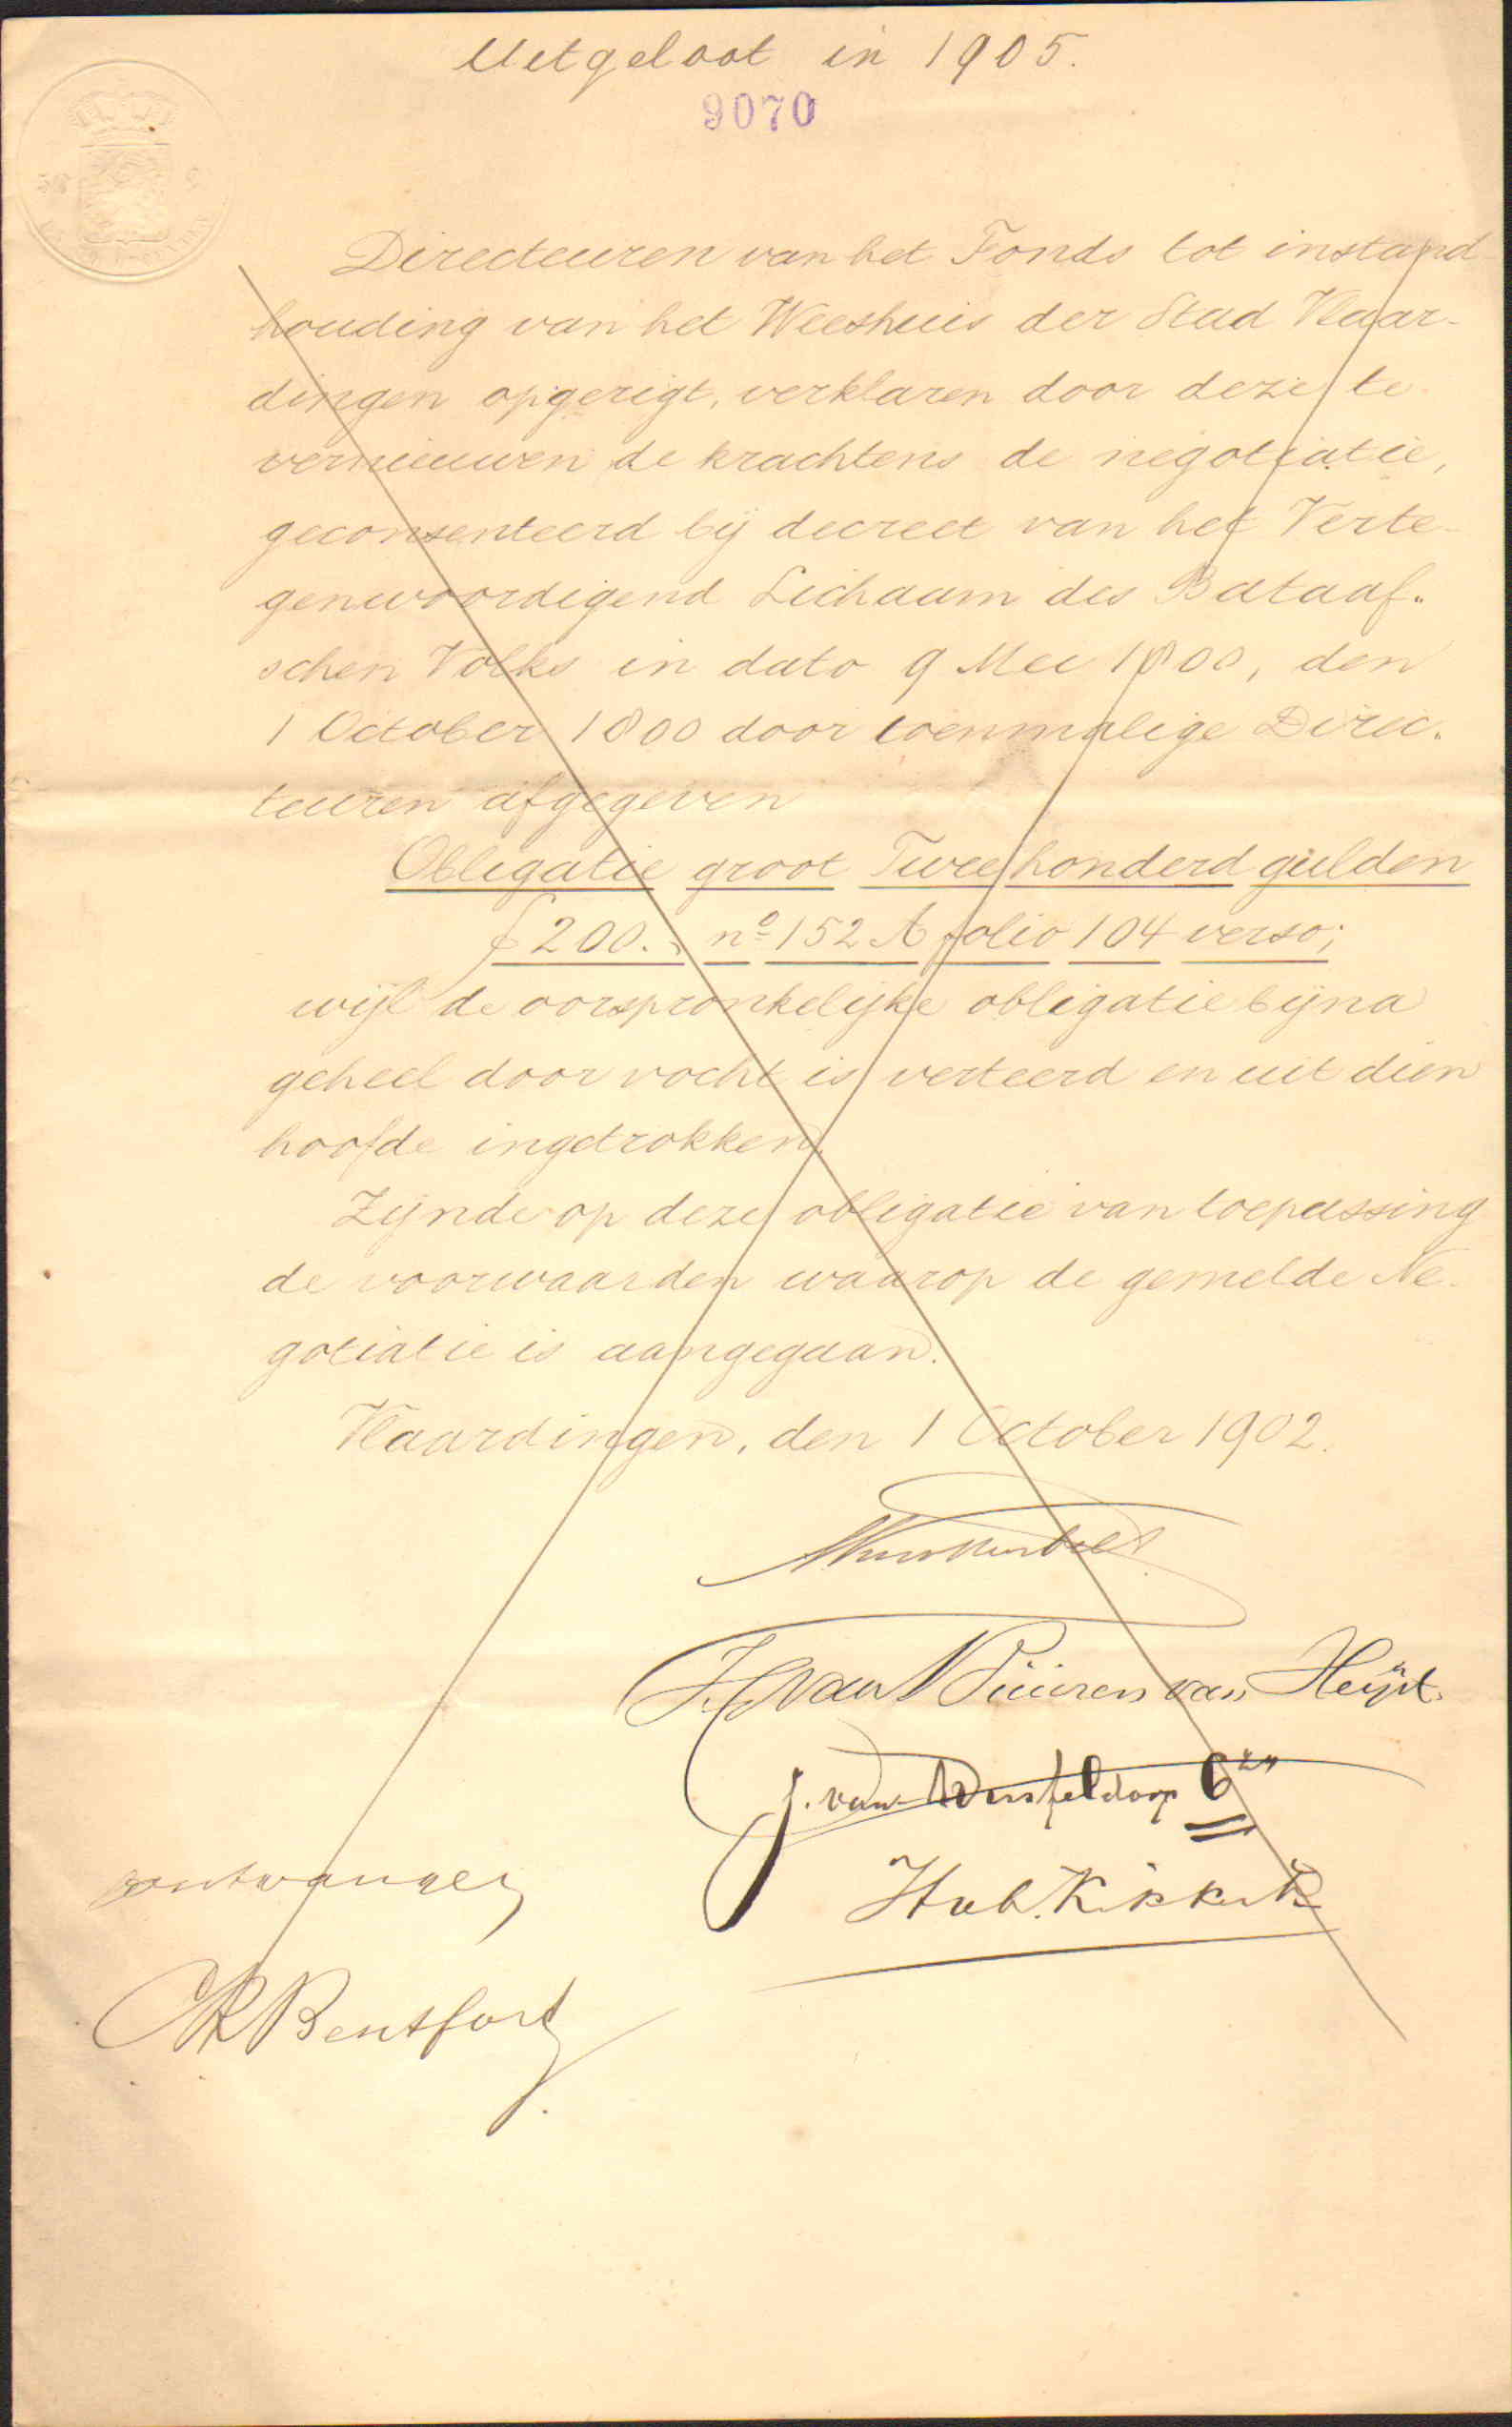 Uitgeloot in 1905.
9070
Directeuren van het Fonds tot instand-
houding van het Weeshuis der Stad Vlaar-
dingen opgerigt, verklaren door deze te
vernieuwen de krachtens de negotiatie,
geconsenteerd bij decreet van het Verte-
genwoordigend Lichaam des Bataaf-
schen Volks in dato 9 Mei 1800, den
1 October 1800 door toenmalige Direc-
teuren afgegeven
Obligatie groot Tweehonderd gulden
f 200.- no 152 A folio 104 verso;
wijl de oorspronkelijke obligatie bijna
geheel door vocht is verteerd en uit dien
hoofde ingetrokken.
Zijnde op deze obligatie van toepassing
de voorwaarden waarop de gemelde Ne-
gotiatie is aangegaan.
Vlaardingen, den 1 October 1902.
van Heijst.
J. van
Hub. Kikkert
ontvangen
Bentfort